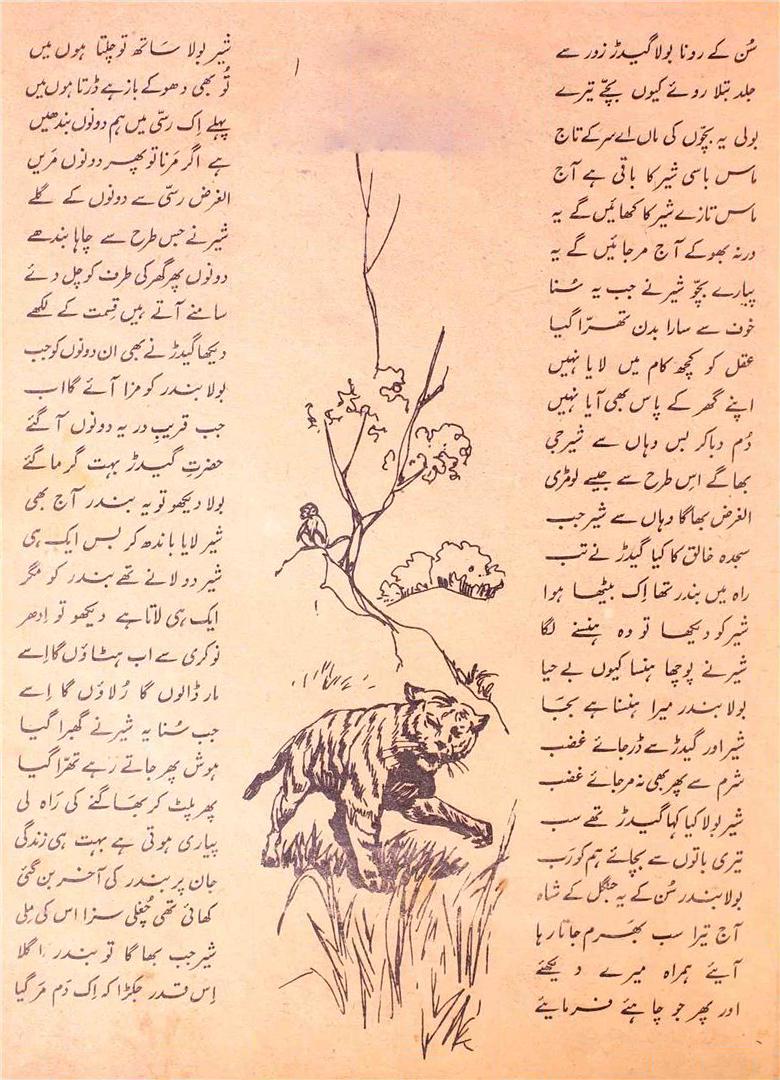 سُن کے رونا بولا گیدڑ زور سے
جلد بتلا روئے کیوں بچّے تیرے
بولی یہ بچّوں کی ماں اے سر کے تاج
ماس باسی شیر کا باقی ہے آج
ماس تازے شیر کا کھائیں گے یہ
ورنہ بھوکے آج مر جائیں گے یہ
پیارے بچّو شیر نے جب یہ سُنا
خوف سے سارا بدن تھرّا گیا
عقل کو کچھ کام میں لایا نہیں
اپنے گھر کے پاس بھی آیا نہیں
دُم دبا کر بس وہاں سے شیر جی
بھاگے اس طرح سے جیسے لومڑی
الغرض بھاگا وہاں سے شیر جب
سجدہ خالق کا کیا گیدڑ نے تب
راہ میں بندر تھا اِک بیٹھا ہوا
شیر کو دیکھا تو وہ ہنسنے لگا
شیر نے پوچھا ہنسا کیوں بے حیا
بولا بندر میرا ہنسنا ہے بجَا
شیر اور گیدڑ سے ڈر جائے غضب
شرم سے پھر بھی نہ مر جائے غضب
شیر بولا کیا کہا گیدڑ تھے سب
تیری باتوں سے بچائے ہم کو رَب
بولا بندر سُن کے یہ جنگل کے شاہ
آج تیرا سب بھَرم جاتا رہا
آیئے ہمراہ میرے دیکھئے
اور پھر جو چاہئے فرمایئے
شیر بولا سَاتھ تو چلتا ہوں میں
تُو بھی دھوکے باز ہے ڈرتا ہوں میں
پہلے اِک رسّی میں ہم دونوں بندھیں
ہے اگر مَرنا تو پھر دونوں مَریں
الغرض رسّی سے دونوں کے گلے
شیر نے جس طرح سے چاہا بندھے
دونوں پھر گھر کی طرف کو چل دیئے
سامنے آتے ہیں قِسمت کے لکھے
دیکھا گیدڑ نے بھی ان دونوں کو جب
بولا بندر کو مزا آئے گا اب
جب قریبِ در یہ دونوں آ گئے
حضرتِ گیدڑ بہت گرما گئے
بولا دیکھو تو یہ بندر آج بھی
شیر لایا باندھ کر بس ایک ہی
شیر دو لانے تھے بندر کو مگر
ایک ہی لاتا ہے دیکھو تو اِدھر
نوکری سے اب ہٹاؤں گا اِسے
مار ڈالوں گا رُلاؤں گا اِسے
جب سُنا یہ شیر نے گھبرا گیا
ہوش پھر جاتے رہے تھرّا گیا
پھر پلٹ کر بھَاگنے کی رَاہ لی
پیاری ہوتی ہے بہت ہی زندگی
جان پر بندر کی آخر بن گئی
کھائی تھی چُغلی سزا اس کی مِلی
شیر جب بھاگا تو بندر کا گلا
اِس قدر جکڑا کہ اِک دَم مَر گیا